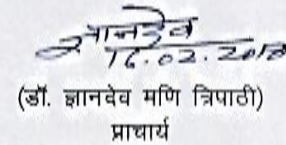 ज्ञानदेव
16.02.2018
(डॉ. ज्ञानदेव मणि त्रिपाठी)
प्राचार्य